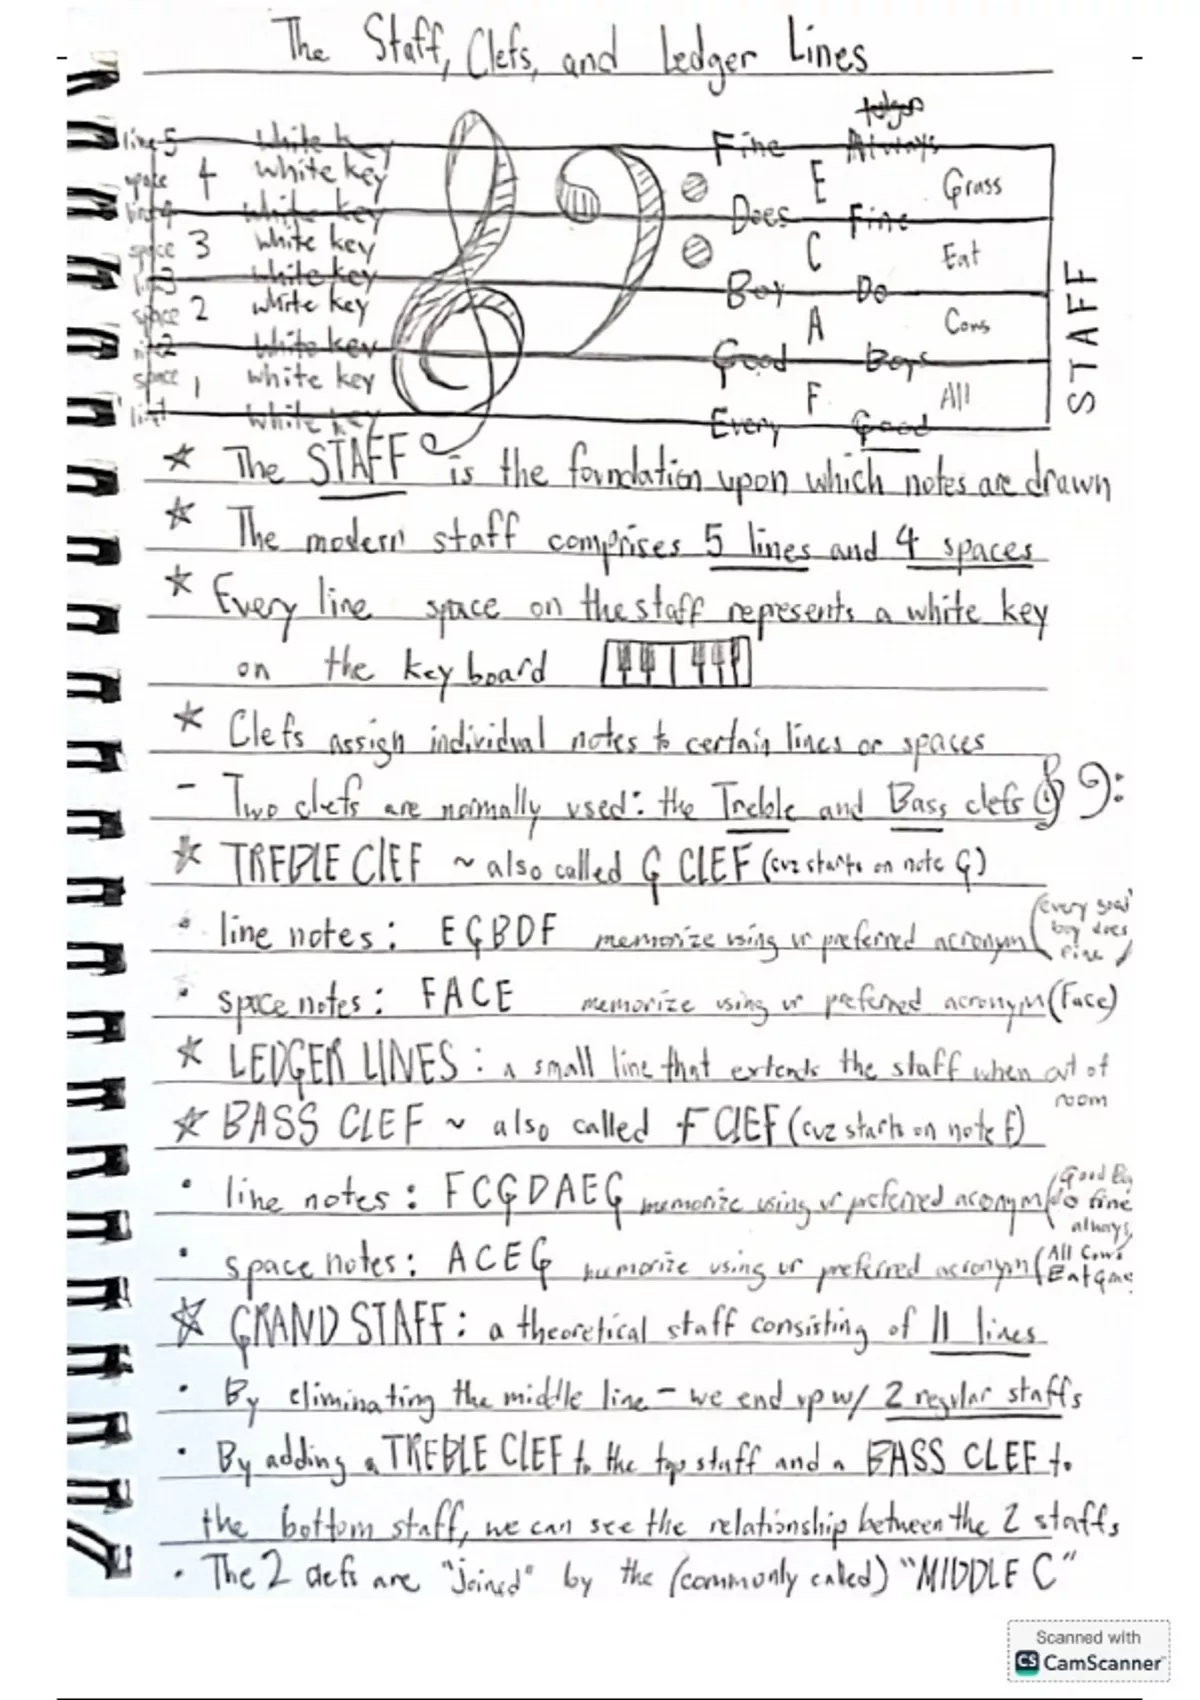 The Staff, Clefs, and Ledger Lines
line 5 white key Fine Always
space 4 white key E Grass
line 4 white key Does Fine
space 3 white key C Eat
line 3 white key Boy Do
space 2 white key A Cows
line 2 white key Good Boys
space 1 white key F All
line 1 white key Every Good
STAFF
☆ The STAFF is the foundation upon which notes are drawn
☆ The modern staff comprises 5 lines and 4 spaces
☆ Every line space on the staff represents a white key
on the keyboard
☆ Clefs assign individual notes to certain lines or spaces
- Two clefs are normally used: the Treble and Bass clefs
☆ TREBLE CLEF ~ also called G CLEF (cuz starts on note G)
• line notes: EGBDF memorize using ur preferred acronym (every good
boy does
fine)
• space notes: FACE memorize using ur preferred acronym (Face)
☆ LEDGER LINES: a small line that extends the staff when out of
room
☆ BASS CLEF ~ also called F ClEF (cuz starts on note f)
• line notes: FCGDAEG memorize using ur preferred acronym (Good Boy
do fine
always)
• space notes: ACEG memorize using ur preferred acronym (All Cows
Eat
☆ GRAND STAFF: a theoretical staff consisting of 11 lines
• By eliminating the middle line - we end up w/ 2 regular staffs
• By adding a TREBLE CLEF to the top staff and a BASS CLEF to
the bottom staff, we can see the relationship between the 2 staffs
• The 2 clefs are "joined" by the (commonly called) "MIDDLE C"
Scanned with
CS CamScanner